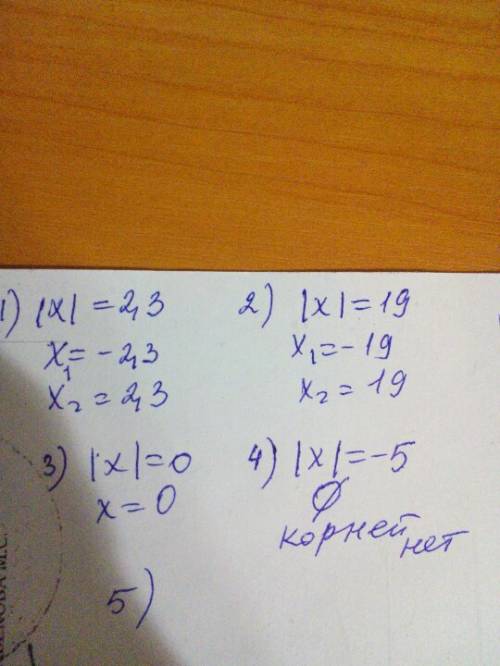 1) |x| = 2,3
x₁ = -2,3
x₂ = 2,3
2) |x| = 19
x₁ = -19
x₂ = 19
3) |x| = 0
x = 0
4) |x| = -5
∅
корней нет
5)